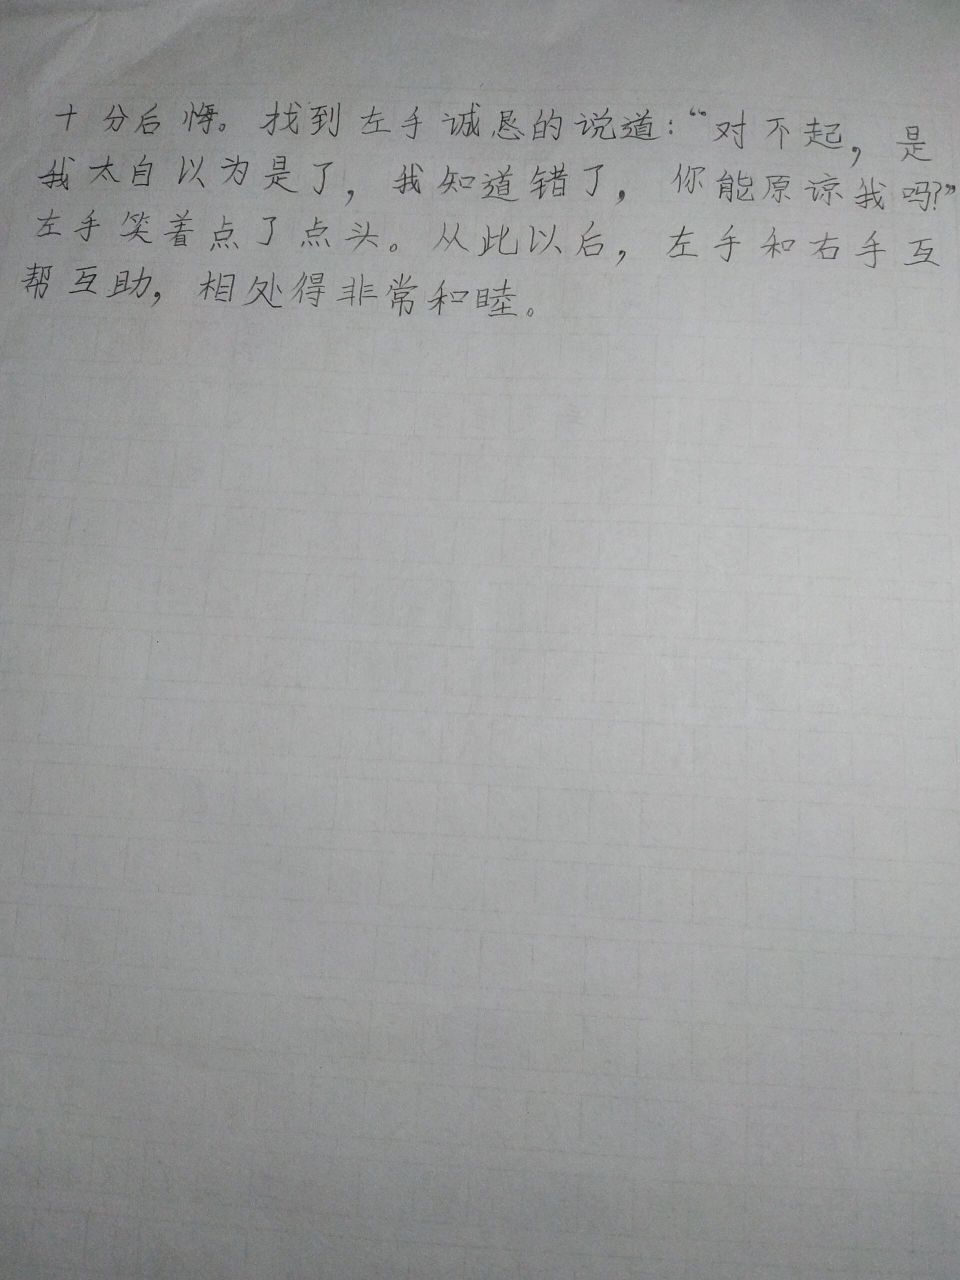 十分后悔。找到左手诚恳的说道：“对不起，是
我太自以为是了，我知道错了，你能原谅我吗？”
左手笑着点了点头。从此以后，左手和右手互
帮互助，相处得非常和睦。